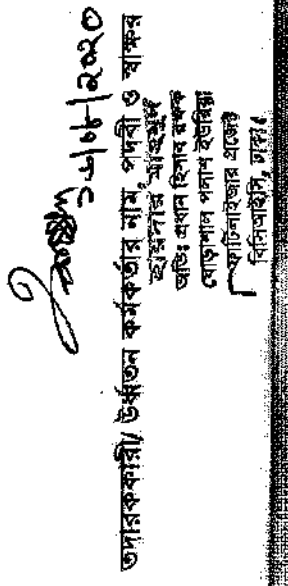 ১৮/০৮/২০২০
তদারককারী/ উর্ধ্বতন কর্মকর্তার নাম, পদবী ও স্বাক্ষর
অতিঃ প্রধান হিসাব রক্ষক
ঘোড়াশাল পলাশ ইউরিয়া
ফার্টিলাইজার প্রজেক্ট
বিসিআইসি, ঢাকা।